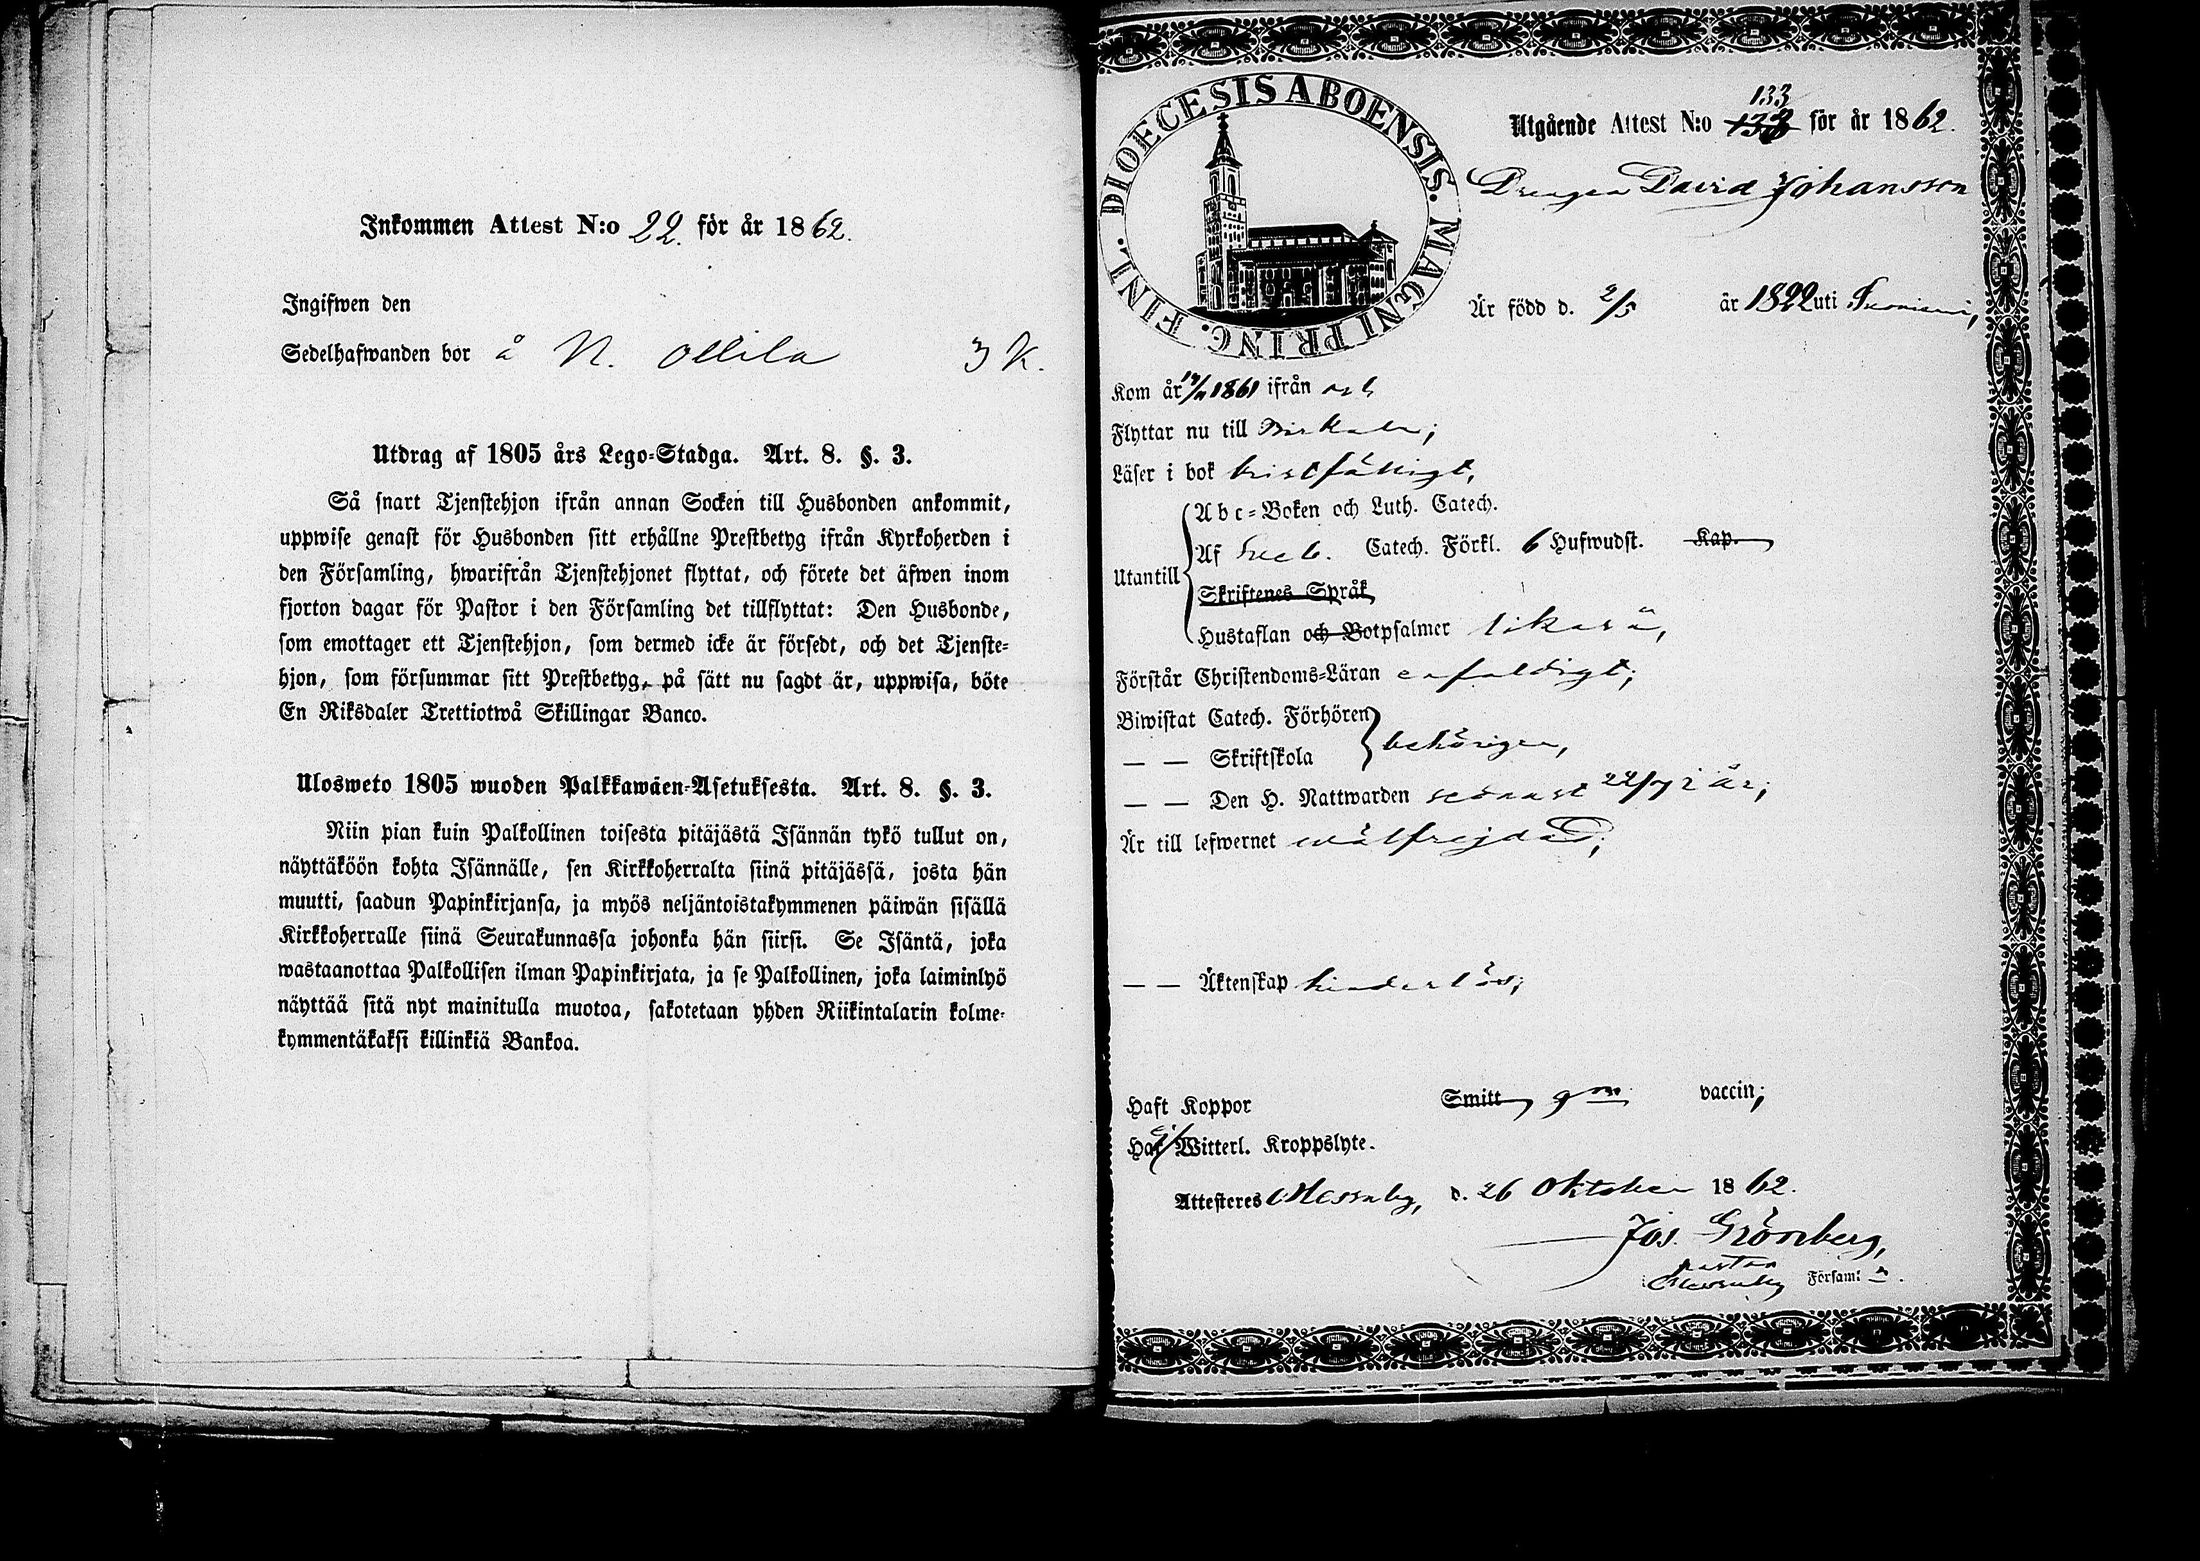 Inkommen Attest N:o 22. för år 1862.
Ingifwen den
Sedelhafwanden bor å N. Ollila 3 K.
Utdrag af 1805 års Lego-Stadga. Art. 8. §. 3.
Så snart Tjenstehjon ifrån annan Socken till Husbonden ankommit,
uppwise genast för Husbonden sitt erhållne Prestbetyg ifrån Kyrkoherden i
den Församling, hwarifrån Tjenstehjonet flyttat, och förete det äfwen inom
fjorton dagar för Pastor i den Församling det tillflyttat: Den Husbonde,
som emottager ett Tjenstehjon, som dermed icke är försedt, och det Tjenste-
hjon, som försummar sitt Prestbetyg, på sätt nu sagdt är, uppwisa, böte
En Riksdaler Trettiotwå Skillingar Banco.
Ulosweto 1805 wuoden Palkkawäen-Asetuksesta. Art. 8. §. 3.
Niin pian kuin Palkollinen toisesta pitäjästä Isännän tykö tullut on,
näyttäköön kohta Isännälle, sen Kirkkoherralta siinä pitäjässä, josta hän
muutti, saadun Papinkirjansa, ja myös neljäntoistakymmenen päiwän sisällä
Kirkkoherralle siinä Seurakunnassa johonka hän siirsi. Se Isäntä, joka
wastaanottaa Palkollisen ilman Papinkirjata, ja se Palkollinen, joka laiminlyö
näyttää sitä nyt mainitulla muotoa, sakotetaan yhden Riikintalarin kolme-
kymmentäkaksi killinkiä Bankoa.
FINL. DIOECESIS ABOENSIS. MAGNI PRINC.
133
Utgående Attest N:o för år 1862.
Drengen David Johansson
Är född d. 2/5 år 1822 uti
Kom år 1861 ifrån
Flyttar nu till Birkala;
Läser i bok bristfälligt,
Abc-Boken och Luth. Catech.
Af Sveb. Catech. Förkl. 6 Hufwudst. Kap.
Utantill
Skriftenes Språk
Hustaflan och Botpsalmer likaså,
Förstår Christendoms-Läran enfaldigt;
Biwistat Catech. Förhören
behörigen,
— — Skriftskola
— — Den H. Nattwarden senast 22/7 i år;
Är till lefwernet wälfrejdad;
— — Äktenskap hinderlös;
Haft Koppor Smitt gm vaccin;
Har ej Witterl. Kroppslyte.
Attesteres Messuby, d. 26 Oktober 1862.
Jos. Grönberg,
pastor
i Messuby Församl